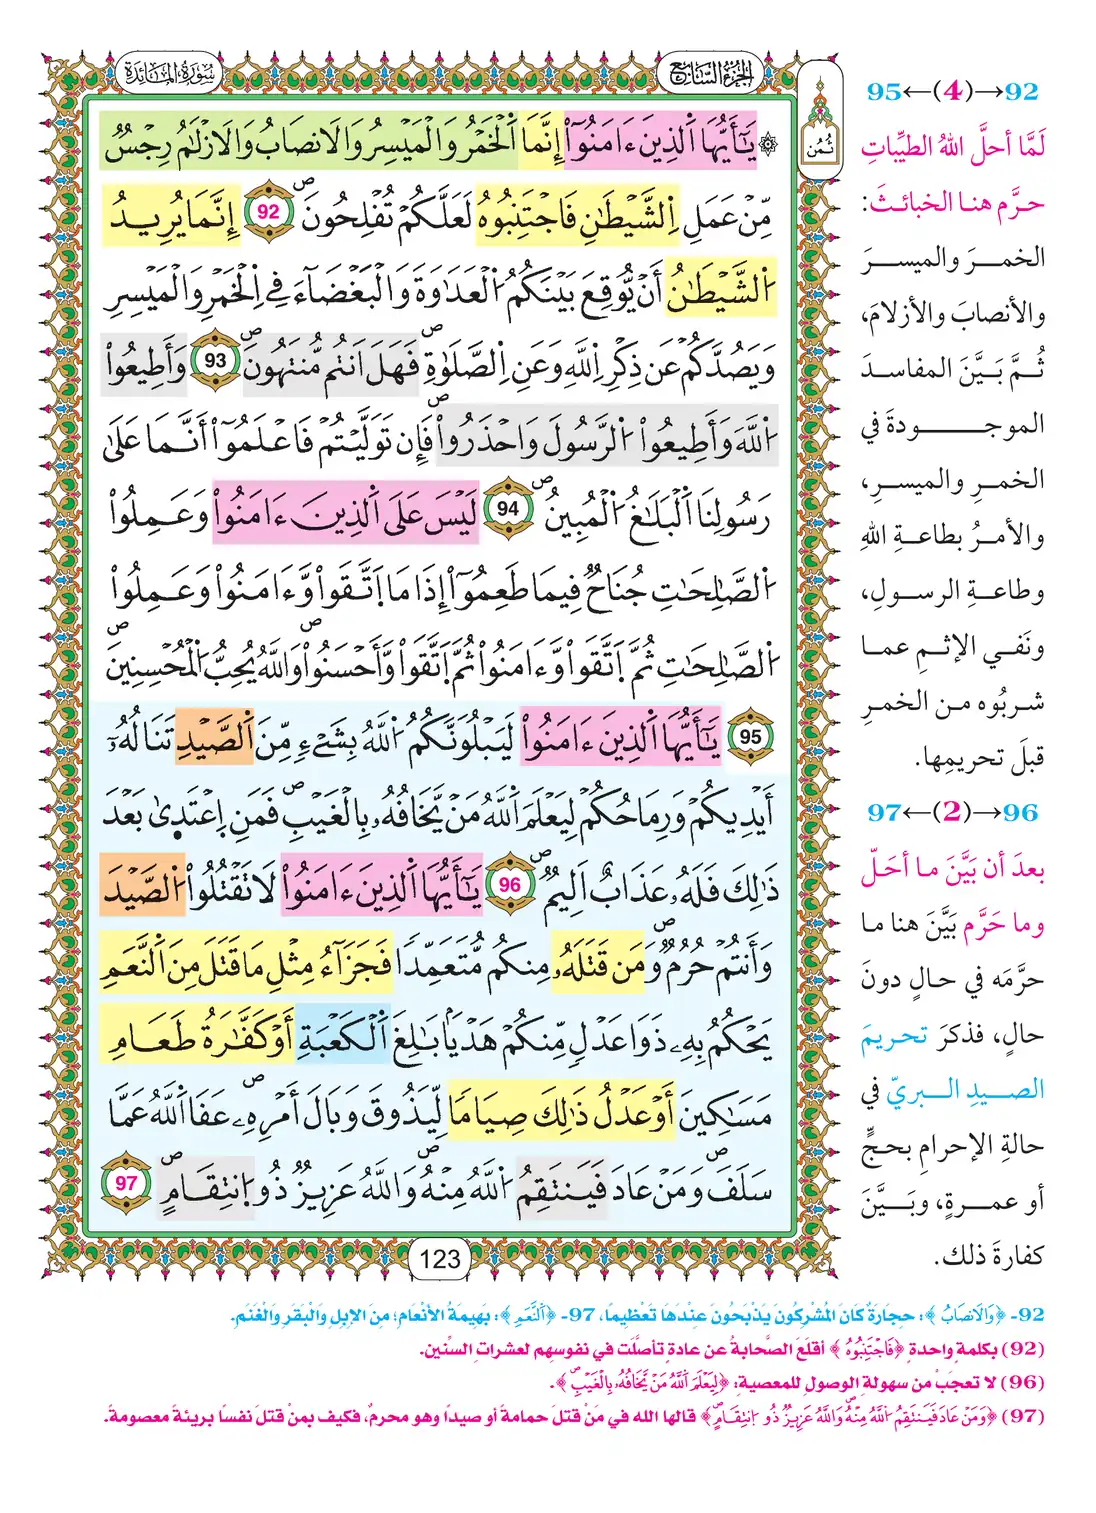 سُورَةُ المَائدَة
الجُزْءُ السَّابِعُ
ثُمُن
يَٰٓأَيُّهَا اَ۬لذِينَ ءَامَنُوٓاْ إِنَّمَا اَ۬لْخَمْرُ وَالْمَيْسِرُ وَالَانصَابُ وَالَازْلَٰمُ رِجْسٞ
مِّنْ عَمَلِ اِ۬لشَّيْطَٰنِ فَاجْتَنِبُوهُ لَعَلَّكُمْ تُفْلِحُونَۖ 92 إِنَّمَا يُرِيدُ
اُ۬لشَّيْطَٰنُ أَنْ يُّوقِعَ بَيْنَكُمُ اُ۬لْعَدَٰوَةَ وَالْبَغْضَآءَ فِے اِ۬لْخَمْرِ وَالْمَيْسِرِ
وَيَصُدَّكُمْ عَن ذِكْرِ اِ۬للَّهِ وَعَنِ اِ۬لصَّلَوٰةِۖ فَهَلَ اَنتُم مُّنتَهُونَۖ 93 وَأَطِيعُواْ
اُ۬للَّهَ وَأَطِيعُواْ اُ۬لرَّسُولَ وَاحْذَرُواْۖ فَإِن تَوَلَّيْتُمْ فَاعْلَمُوٓاْ أَنَّمَا عَلَىٰ
رَسُولِنَا اَ۬لْبَلَٰغُ اُ۬لْمُبِينُۖ 94 لَيْسَ عَلَى اَ۬لذِينَ ءَامَنُواْ وَعَمِلُواْ
اُ۬لصَّٰلِحَٰتِ جُنَاحٞ فِيمَا طَعِمُوٓاْ إِذَا مَا اَ۪تَّقَواْ وَّءَامَنُواْ وَعَمِلُواْ
اُ۬لصَّٰلِحَٰتِ ثُمَّ اَ۪تَّقَواْ وَّءَامَنُواْ ثُمَّ اَ۪تَّقَواْ وَّأَحْسَنُواْۖ وَاللَّهُ يُحِبُّ اُ۬لْمُحْسِنِينَۖ
95 يَٰٓأَيُّهَا اَ۬لذِينَ ءَامَنُواْ لَيَبْلُوَنَّكُمُ اُ۬للَّهُ بِشَےْءٖ مِّنَ اَ۬لصَّيْدِ تَنَالُهُۥٓ
أَيْدِيكُمْ وَرِمَاحُكُمْ لِيَعْلَمَ اَ۬للَّهُ مَنْ يَّخَافُهُۥ بِالْغَيْبِۖ فَمَنِ اِ۪عْتَدَىٰ بَعْدَ
ذَٰلِكَ فَلَهُۥ عَذَابٌ اَلِيمٞۖ 96 يَٰٓأَيُّهَا اَ۬لذِينَ ءَامَنُواْ لَا تَقْتُلُواْ اُ۬لصَّيْدَ
وَأَنتُمْ حُرُمٞۖ وَمَن قَتَلَهُۥ مِنكُم مُّتَعَمِّدٗا فَجَزَآءُ مِثْلِ مَا قَتَلَ مِنَ اَ۬لنَّعَمِ
يَحْكُمُ بِهِۦ ذَوَا عَدْلٖ مِّنكُمْ هَدْيَۢا بَٰلِغَ اَ۬لْكَعْبَةِ أَوْ كَفَّٰرَةُ طَعَامِ
مَسَٰكِينَ أَوْ عَدْلُ ذَٰلِكَ صِيَامٗا لِّيَذُوقَ وَبَالَ أَمْرِهِۦۖ عَفَا اَ۬للَّهُ عَمَّا
سَلَفَۖ وَمَنْ عَادَ فَيَنتَقِمُ اُ۬للَّهُ مِنْهُۖ وَاللَّهُ عَزِيزٞ ذُو اُ۪نتِقَامٍۖ 97
123
92→(4)←95
لَمَّا أحلَّ اللهُ الطيِّباتِ
حرَّم هنا الخبائثَ:
الخمرَ والميسرَ
والأنصابَ والأزلامَ،
ثُمَّ بَيَّنَ المفاسدَ
الموجودةَ في
الخمرِ والميسرِ،
والأمرُ بطاعةِ اللهِ
وطاعةِ الرسولِ،
ونَفي الإثمِ عما
شربُوه من الخمرِ
قبلَ تحريمِها.
96→(2)←97
بعدَ أن بَيَّنَ ما أحَلّ
وما حَرَّم بَيَّنَ هنا ما
حرَّمَه في حالٍ دونَ
حالٍ، فذكرَ تحريمَ
الصيدِ البريّ في
حالةِ الإحرامِ بحجٍّ
أو عمرةٍ، وبيَّنَ
كفارةَ ذلك.
92- ﴿وَالَانصَابُ﴾: حِجَارَةٌ كَانَ المُشْرِكُونَ يَذْبَحُونَ عِنْدَهَا تَعْظِيمًا، 97- ﴿اَ۬لنَّعَمِ﴾: بَهِيمَةُ الأَنْعَامِ؛ مِنَ الإِبِلِ وَالْبَقَرِ وَالْغَنَمِ.
(92) بكلمةٍ واحدةٍ ﴿فَاجْتَنِبُوهُ﴾ أقلَعَ الصَّحابةُ عن عادةٍ تأصَّلَت في نفوسِهم لعشراتِ السِّنين.
(96) لا تعجَبْ من سهولةِ الوصولِ للمعصيةِ: ﴿لِيَعْلَمَ اَ۬للَّهُ مَنْ يَّخَافُهُۥ بِالْغَيْبِۖ﴾.
(97) ﴿وَمَنْ عَادَ فَيَنتَقِمُ اُ۬للَّهُ مِنْهُۖ وَاللَّهُ عَزِيزٞ ذُو اُ۪نتِقَامٍۖ﴾ قالها الله في مَنْ قتلَ حمامةً أو صيداً وهو محرمٌ، فكيف بمنْ قتلَ نفسًا بريئةً معصومةً.